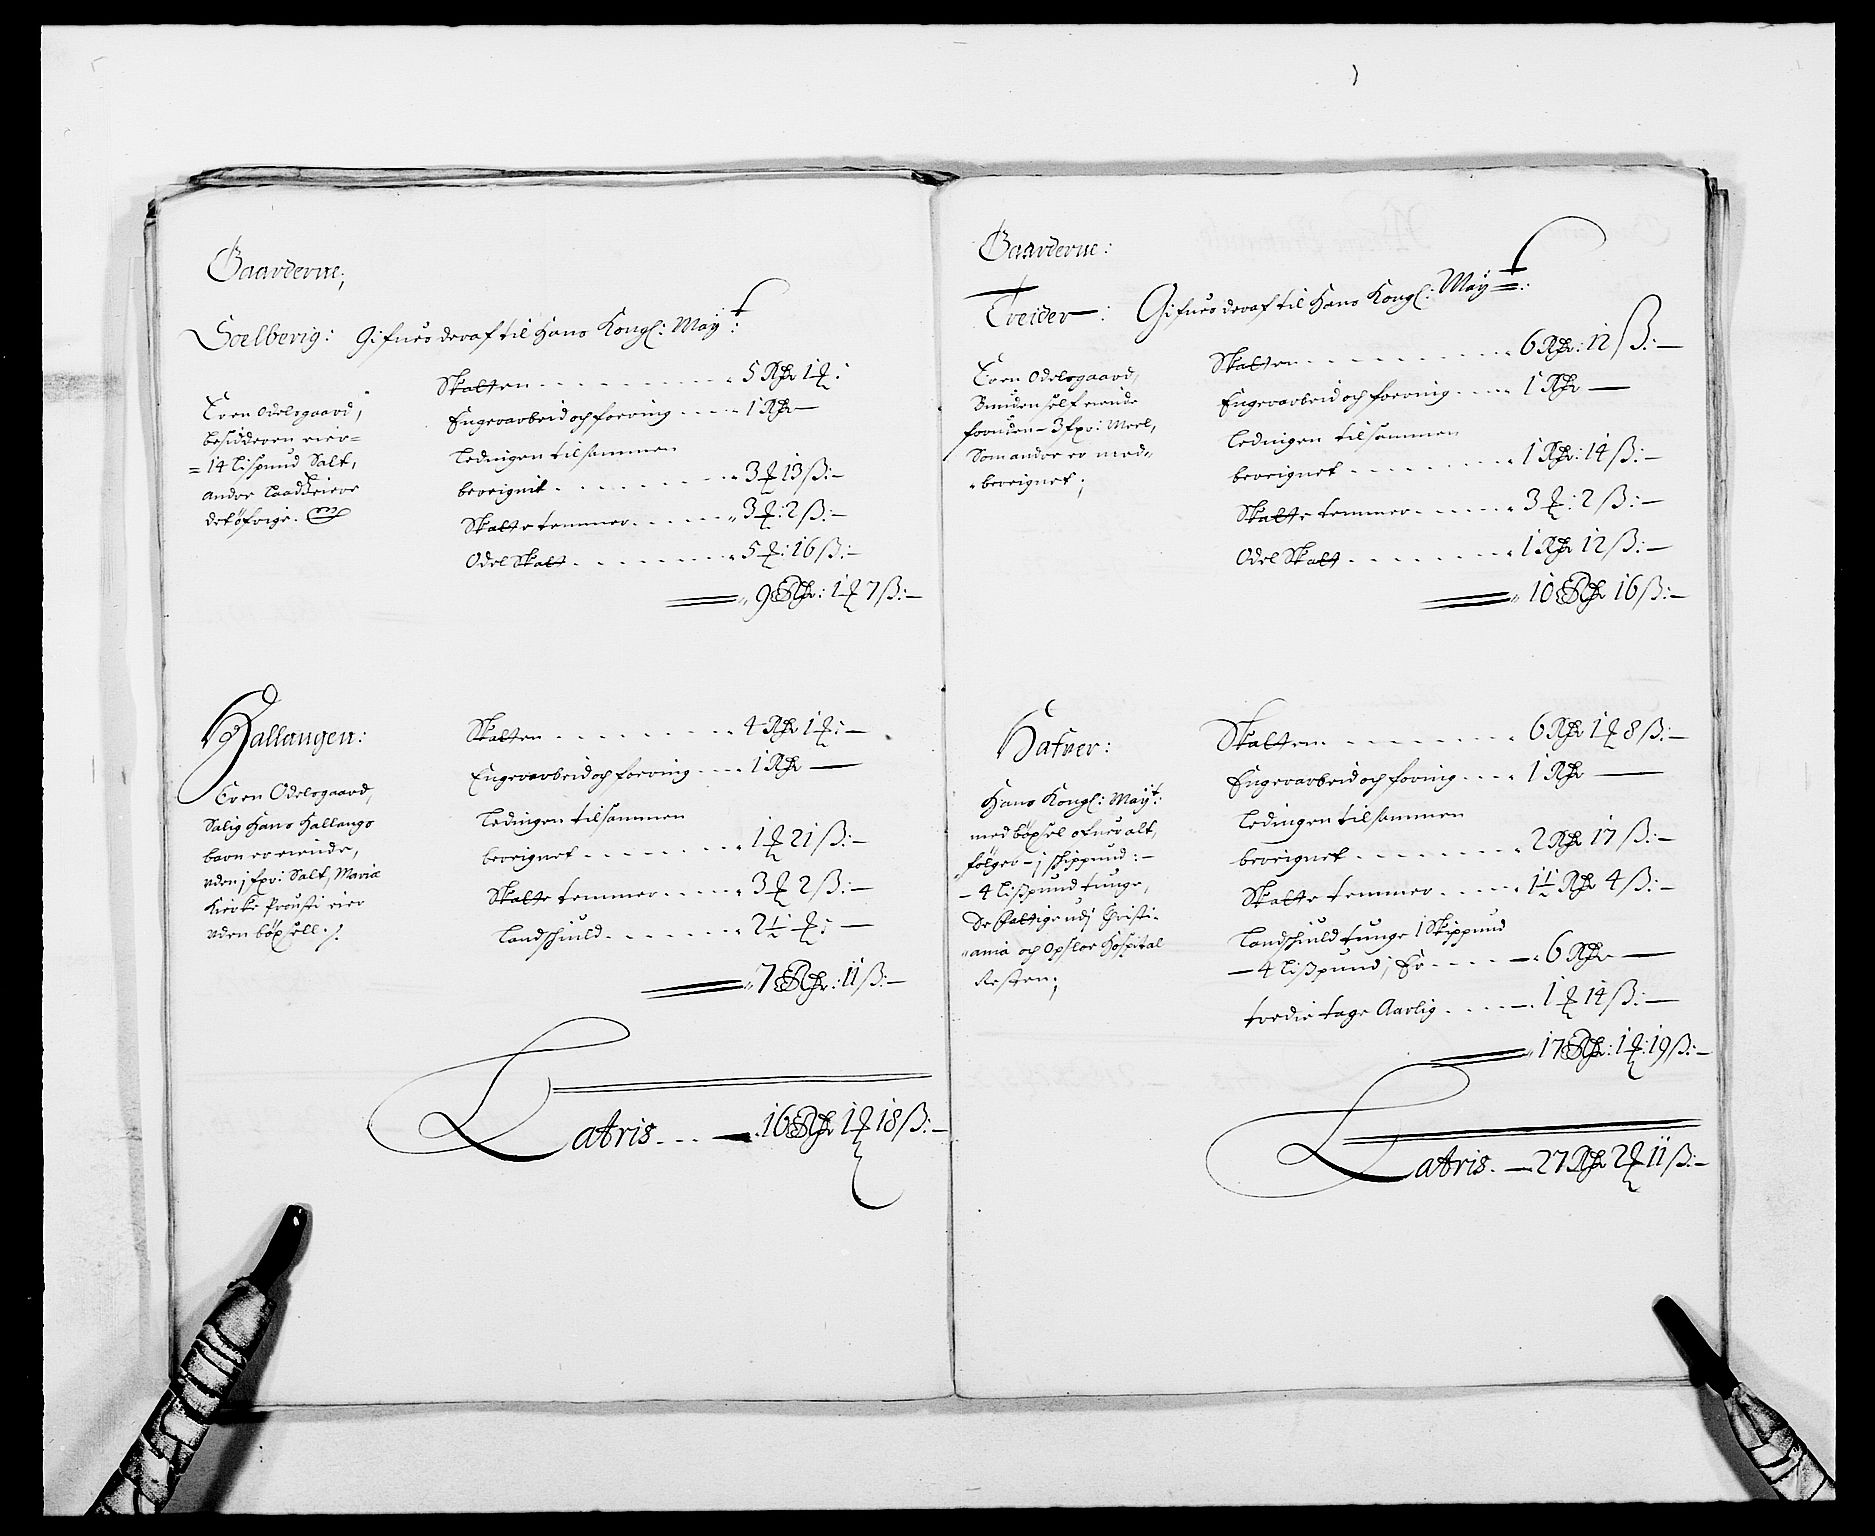 Gaarderne;
Soelberig: Gifues deraf til Hans Kongl: Mayt:
Er en Odelsgaard,
besidderen eier
= 14 Lispund Salt,
andre Laadzeiere
det øfrige.
Skatten - - - - 5 Rdr 1 ƶ:
Engerarbeid och foering - - - 1 Rdr —
Ledingen tilsammen
bereignit - - - - 3 ƶ 13 ß:—
Skatte temmer - - - - 3 ƶ: 2 ß:—
Odel Skatt - - - - 5 ƶ: 16 ß:—
9 Rdr: 1 ƶ 7 ß:—
Hallangen:
Er en Odelsgaard,
Salig Hans Hallangs
børn er eiende,
uden j fxr: Salt, Maria
Kierke Prousti eier
uden bøxsell ./.
Skatten - - - - 4 Rdr 1 ƶ: —
Engerarbeid och foering - - - 1 Rdr —
Ledingen tilsammen
bereignet - - - - 1 ƶ 21 ß:—
Skatte temmer - - - - 3 ƶ 2 ß:—
Landschuld - - - - 2½ ƶ: —
7 Rdr: 11 ß:—
Latris - - - 16 Rdr 1 ƶ 18 ß:—
Gaarderne:
Treider: Gifues deraf til Hans Kongl: Mayt:
Er en Odelsgaard,
Bunden self eiende
foruden - 3 fxr: Meel,
Som andre er med
bereignet;
Skatten - - - - 6 Rdr: 12 ß:—
Engerarbeid och foering - - - 1 Rdr —
Ledingen tilsammen
bereignet - - - - 1 Rdr: 14 ß:—
Skatte temmer - - - - 3 ƶ: 2 ß:—
Odel Skatt - - - - 1 Rdr 12 ß:—
10 Rdr 16 ß:—
Hafuer:
Hans Kongl: Mayt:
med bøxsel ofuer alt,
følger - j schippund: -
- 4 Lißpund tunge,
De fattige udj Christi-
ania och Opsloe Hospital
Resten;
Skatten - - - - 6 Rdr 1 ƶ 8 ß:—
Engerarbeid och foring - - - 1 Rdr —
Ledingen tilsammen
bereignet - - - - 2 Rdr 17 ß:—
Skatte temmer - - - - 1½ Rdr 4 ß:—
Landschuld tunge 1 Skippund
— 4 Lißpund, Er - - - - 6 Rdr —
tredie tage Aarlig - - - - 1 ƶ 14 ß:—
17 Rdr: 1 ƶ: 19 ß:—
Latris. — 27 Rdr 2 ƶ 11 ß:—